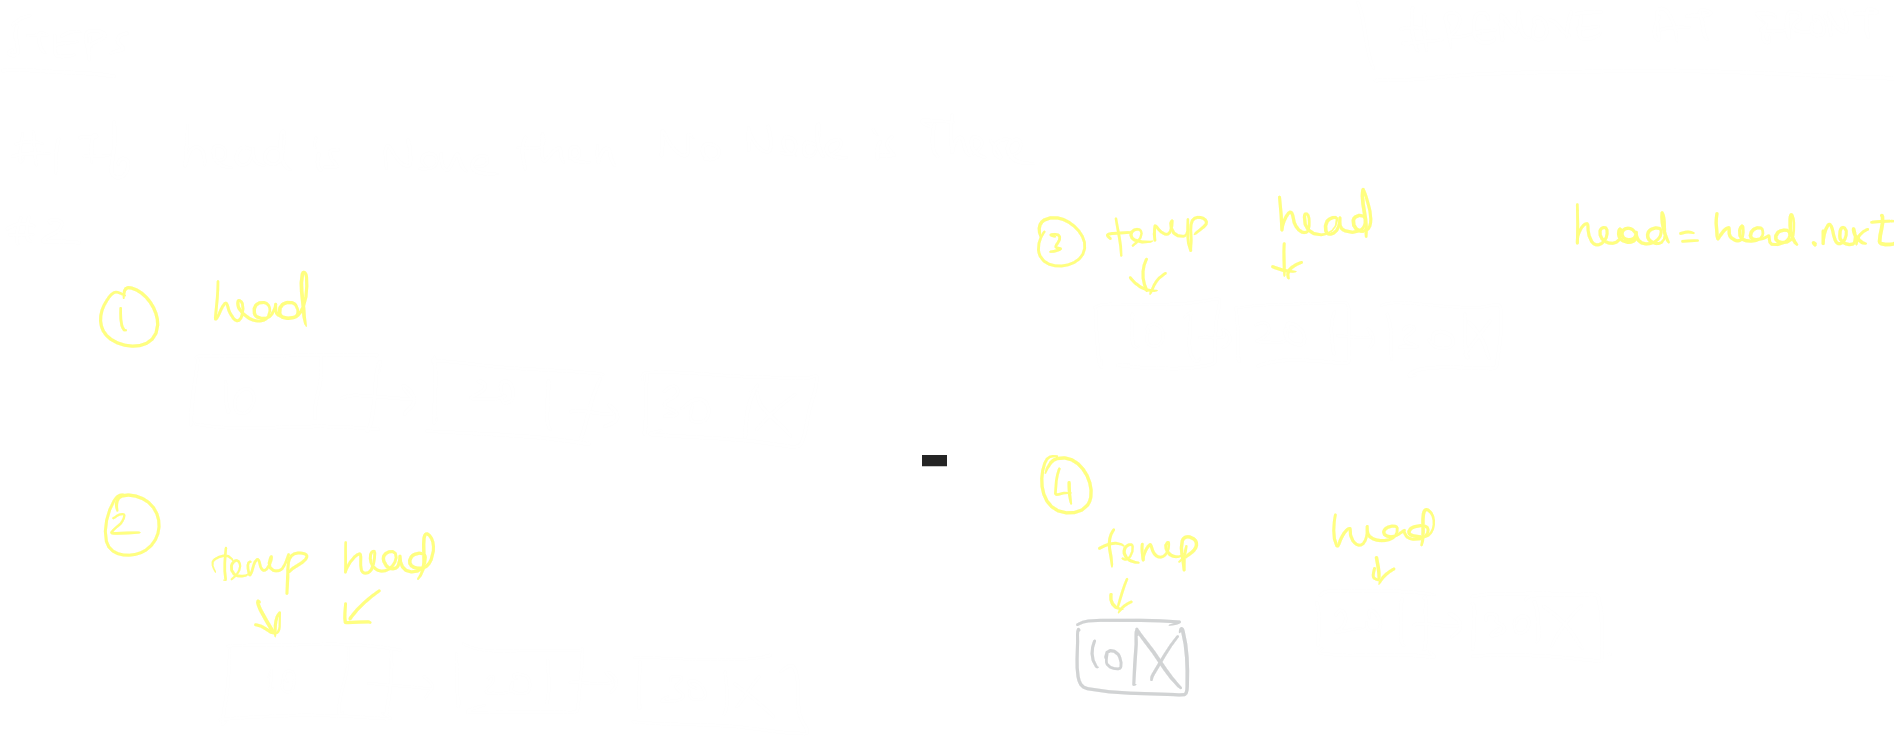 1 head
2
temp head
3 temp head head = head.next
4
temp head
10